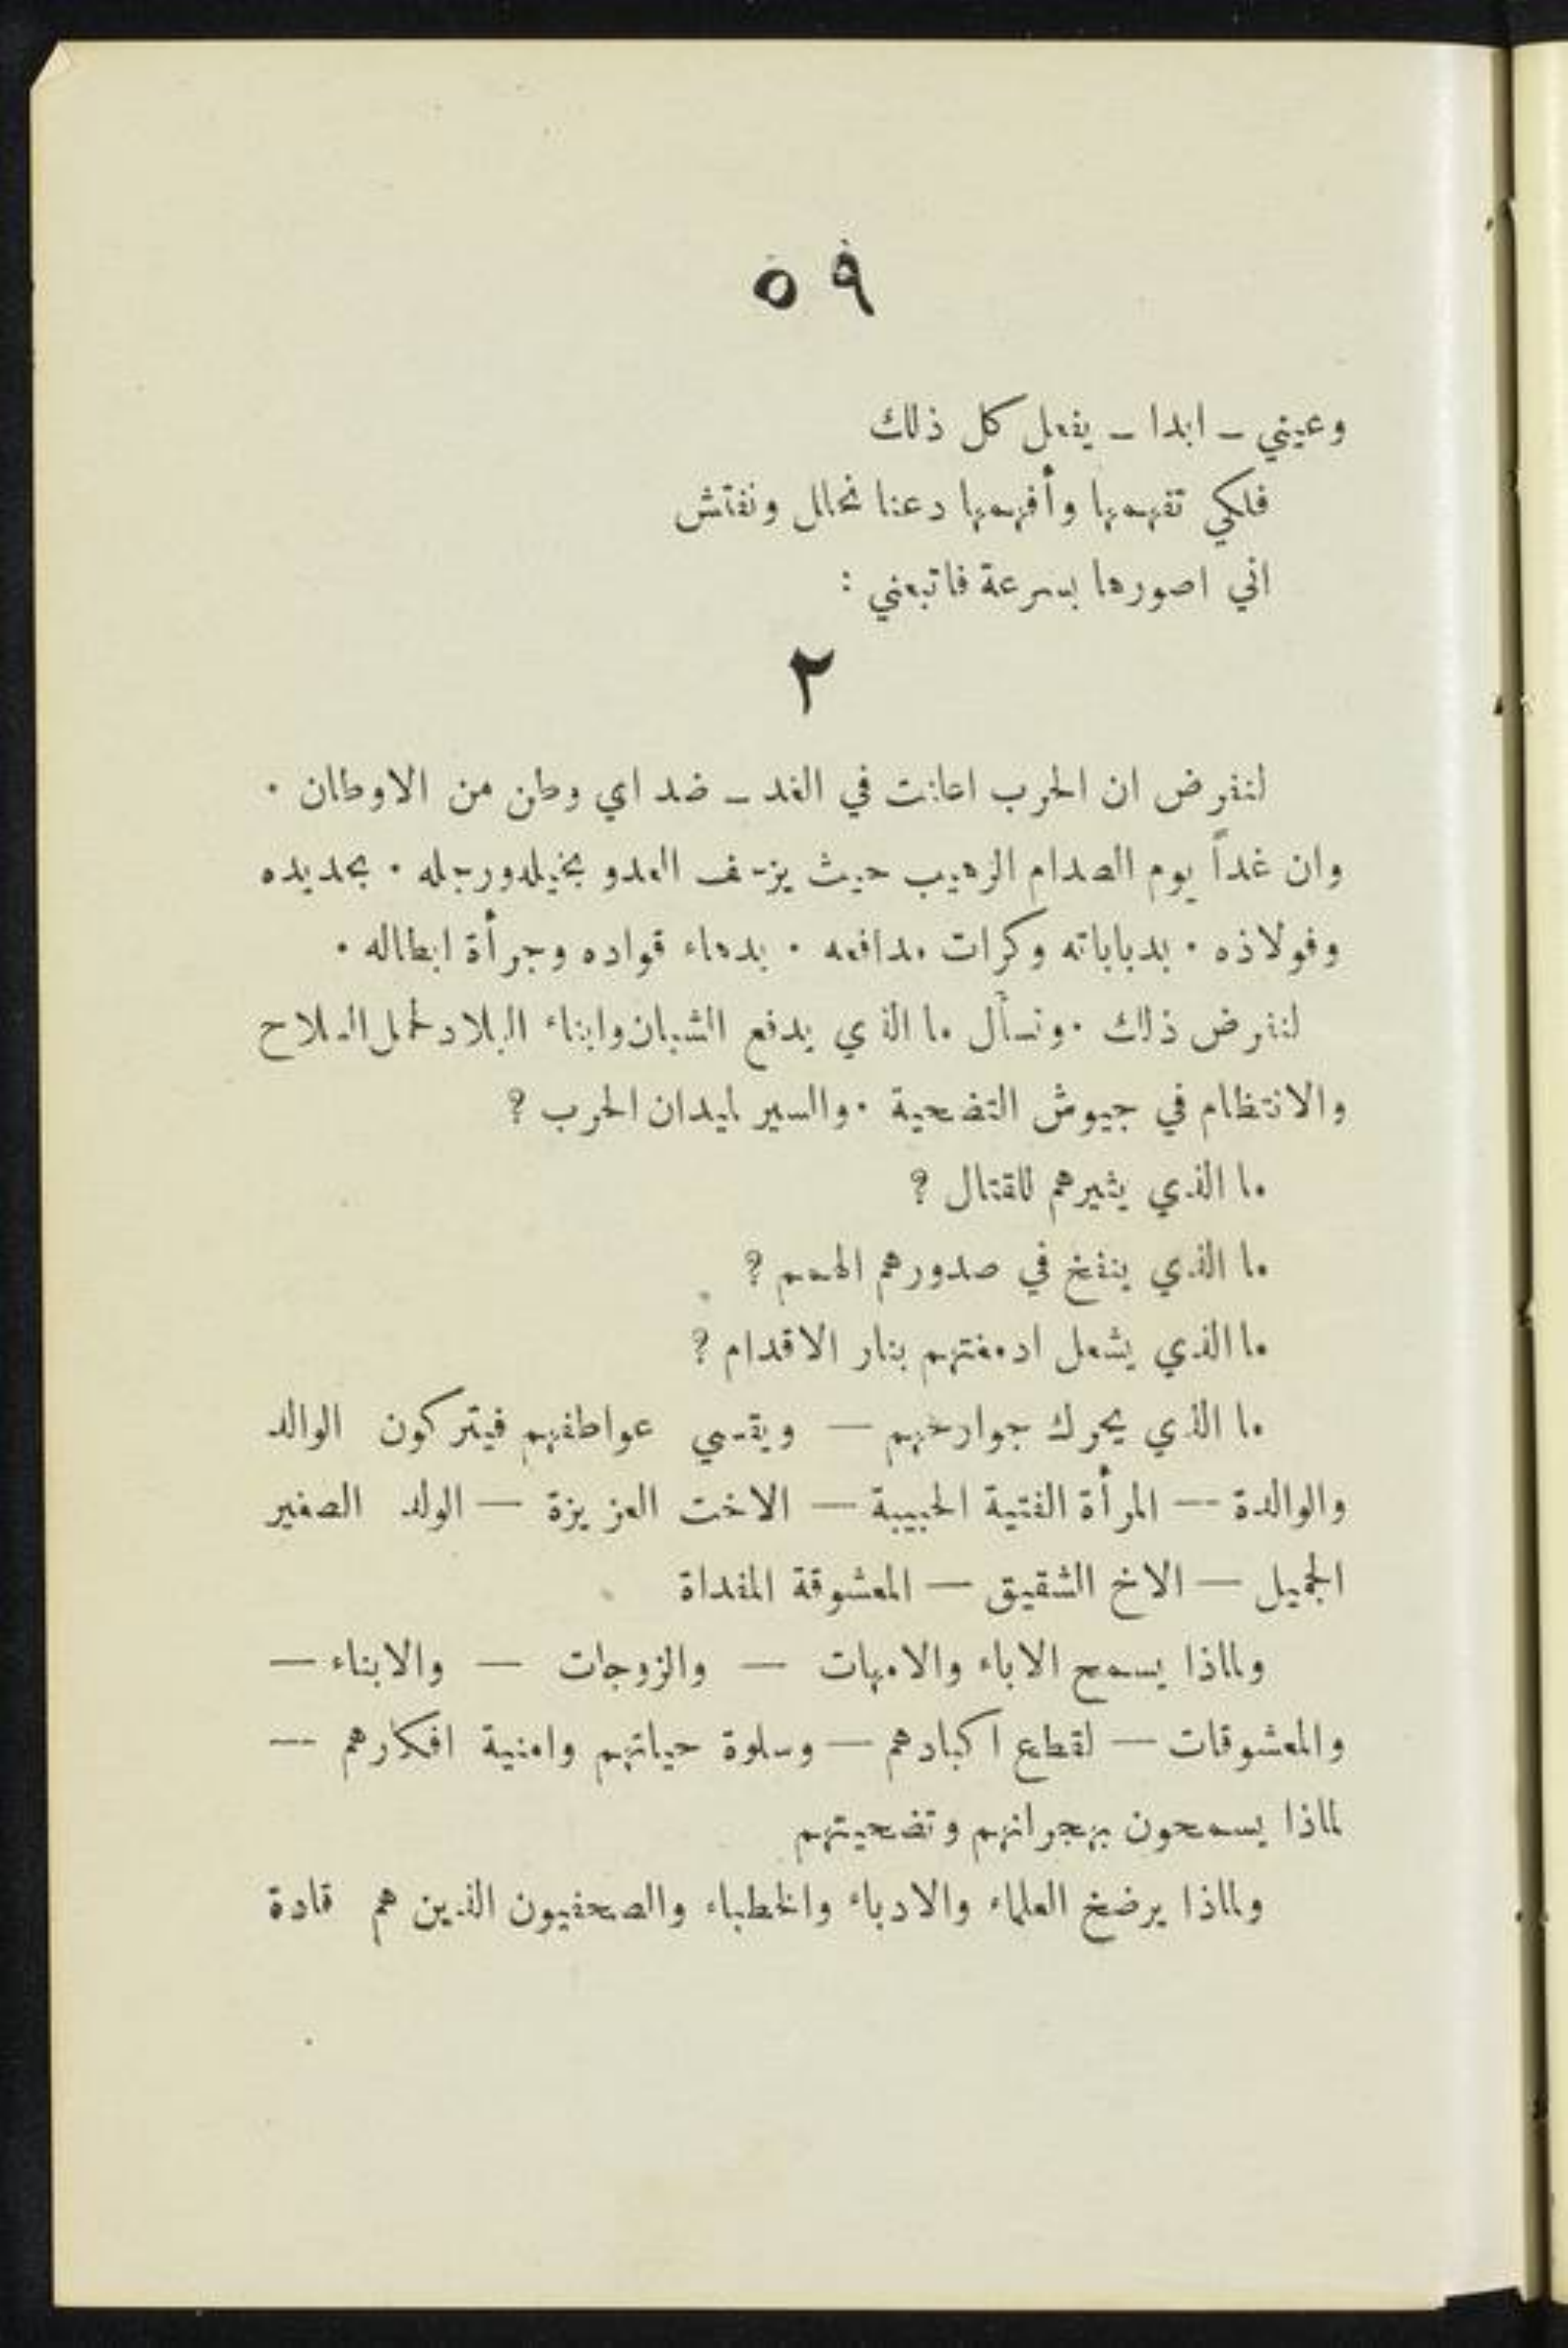 ٥٩
وعيني – ابدا – يفعل كل ذلك
فلكي تفهمها وأفهمها دعنا نحلل ونفتش
اني اصورها بسرعة فاتبعني :
٢
لنفرض ان الحرب اعلنت في الغد – ضد اي وطن من الاوطان ٠
وان غداً يوم الصدام الرهيب حيث يزحف العدو بخيله ورجله ٠ بحديده
وفولاذه ٠ بدباباته وكرات مدافعه ٠ بدهاء قواده وجرأة ابطاله ٠
لنفرض ذلك ٠ ونسأل ما الذي يدفع الشبان وابناء البلاد لحمل السلاح
والانتظام في جيوش التضحية ٠ والسير لميدان الحرب ؟
ما الذي يثيرهم للقتال ؟
ما الذي ينفخ في صدورهم الهمم ؟
ما الذي يشعل ادمغتهم بنار الاقدام ؟
ما الذي يحرك جوارحهم — ويقسي عواطفهم فيتركون الوالد
والوالدة — المرأة الفتية الحبيبة — الاخت العزيزة — الولد الصغير
الجميل — الاخ الشقيق — المعشوقة المفداة
ولماذا يسمح الاباء والامهات — والزوجات — والابناء —
والمعشوقات — لقطع اكبادهم — وسلوة حياتهم وامنية افكارهم —
لماذا يسمحون بهجرانهم وتضحيتهم
ولماذا يرضخ العلماء والادباء والخطباء والصحفيون الذين هم قادة